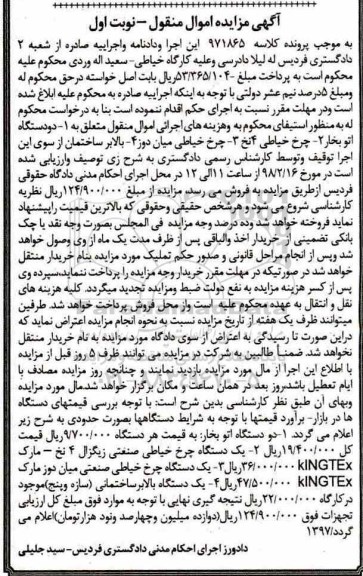 آگهی مزایده اموال منقول – نوبت اول
به موجب پرونده کلاسه ۹۷۱۸۶۵ این اجرا ودادنامه واجراییه صادره از شعبه ۲
دادگستری فردیس له لیلا دادرسی وعلیه کارگاه خیاطی- سعید اله وردی محکوم علیه
محکوم است به پرداخت مبلغ ۵۳/۳۶۵/۱۰۴-ریال بابت اصل خواسته درحق محکوم له
ومبلغ ۵درصد نیم عشر دولتی با توجه به اینکه اجراییه صادره به محکوم علیه ابلاغ شده
است ودر مهلت مقرر نسبت به اجرای حکم اقدام ننموده است بنا به درخواست محکوم
له به منظور استیفای محکوم به وهزینه های اجرائی اموال منقول متعلق به ۱- دودستگاه
اتو بخار۲- چرخ خیاطی ۴نخ ۳-چرخ خیاطی میان دوز۴- بالابر ساختمان از سوی این
اجرا توقیف وتوسط کارشناس رسمی دادگستری به شرح زی توصیف وارزیابی شده
است در مورخ ۹۸/۲/۱۶ از ساعت ۱۱الی ۱۲ در محل اجرای احکام مدنی دادگاه حقوقی
فردیس ازطریق مزایده به فروش می رسد. مزایده از مبلغ ۱۲۴/۹۰۰/۰۰۰ریال نظریه
کارشناسی شروع می شود وهر شخص حقیقی وحقوقی که بالاترین قیمت راپیشنهاد
نماید فروخته خواهد شد وده درصد وجه مزایده فی المجلس بصورت وجه نقد یا چک
بانکی تضمینی از خریدار اخذ والباقی پس از ظرف مدت یک ماه از وی وصول خواهد
شد وپس از انجام مراحل قانونی و صدور حکم تملیک مورد مزایده بنام خریدار منتقل
خواهد شد در صورتیکه در مهلت مقرر خریدار وجه مزایده را پرداخت ننماید،سپرده وی
پس از کسر هزینه مزایده به نفع دولت ضبط ومزایده تجدید میگردد. کلیه هزینه های
نقل و انتقال به عهده محکوم علیه است واز محل فروش پرداخت خواهد شد. طرفین
میتوانند ظرف یک هفته از تاریخ مزایده نسبت به نحوه انجام مزایده اعتراض نماید که
دراین صورت تا رسیدگی به اعتراض از سوی دادگاه مورد مزایده به نام خریدار منتقل
نخواهد شد. ضمناً طالبین به شرکت در مزایده می توانند ظرف ۵ روز قبل از مزایده
با اطلاع این اجرا از مال مورد مزایده بازدید نمایند و چنانچه روز مزایده مصادف با
ایام تعطیل باشدروز بعد در همان ساعت و مکان برگزار خواهد شدمال مورد مزایده
وبهای آن طبق نظر کارشناسی بدین شرح است: با توجه بررسی قیمتهای دستگاه
ها در بازار- برآورد قیمتها با توجه به شرایط دستگاهها بصورت حدودی به شرح زیر
اعلام می گردد. ۱-دو دستگاه اتو بخار: به قیمت هر دستگاه ۹/۷۰۰/۰۰۰ریال قیمت
کل ۱۹/۴۰۰/۰۰۰ریال ۲- یک دستگاه چرخ خیاطی صنعتی زیگزال ۴ نخ – مارک
kINGTEx ۳۶/۰۰۰/۰۰۰ریال۳- یک دستگاه چرخ خیاطی صنعتی میان دوز مارک
kINGTEx ۴۷/۵۰۰/۰۰۰ریال۴- یک دستگاه بالابرساختمانی (سازه وپنج)موجود
درکارگاه ۲۲/۰۰۰/۰۰۰ریال نتیجه گیری نهایی با توجه به موارد فوق مبلغ کل ارزیابی
تجهزات فوق ۱۲۴/۹۰۰/۰۰۰ریال(دوازده میلیون وچهارصد ونود هزارتومان)اعلام می
گردد/۱۳۹۷
دادورز اجرای احکام مدنی دادگستری فردیس- سید جلیلی